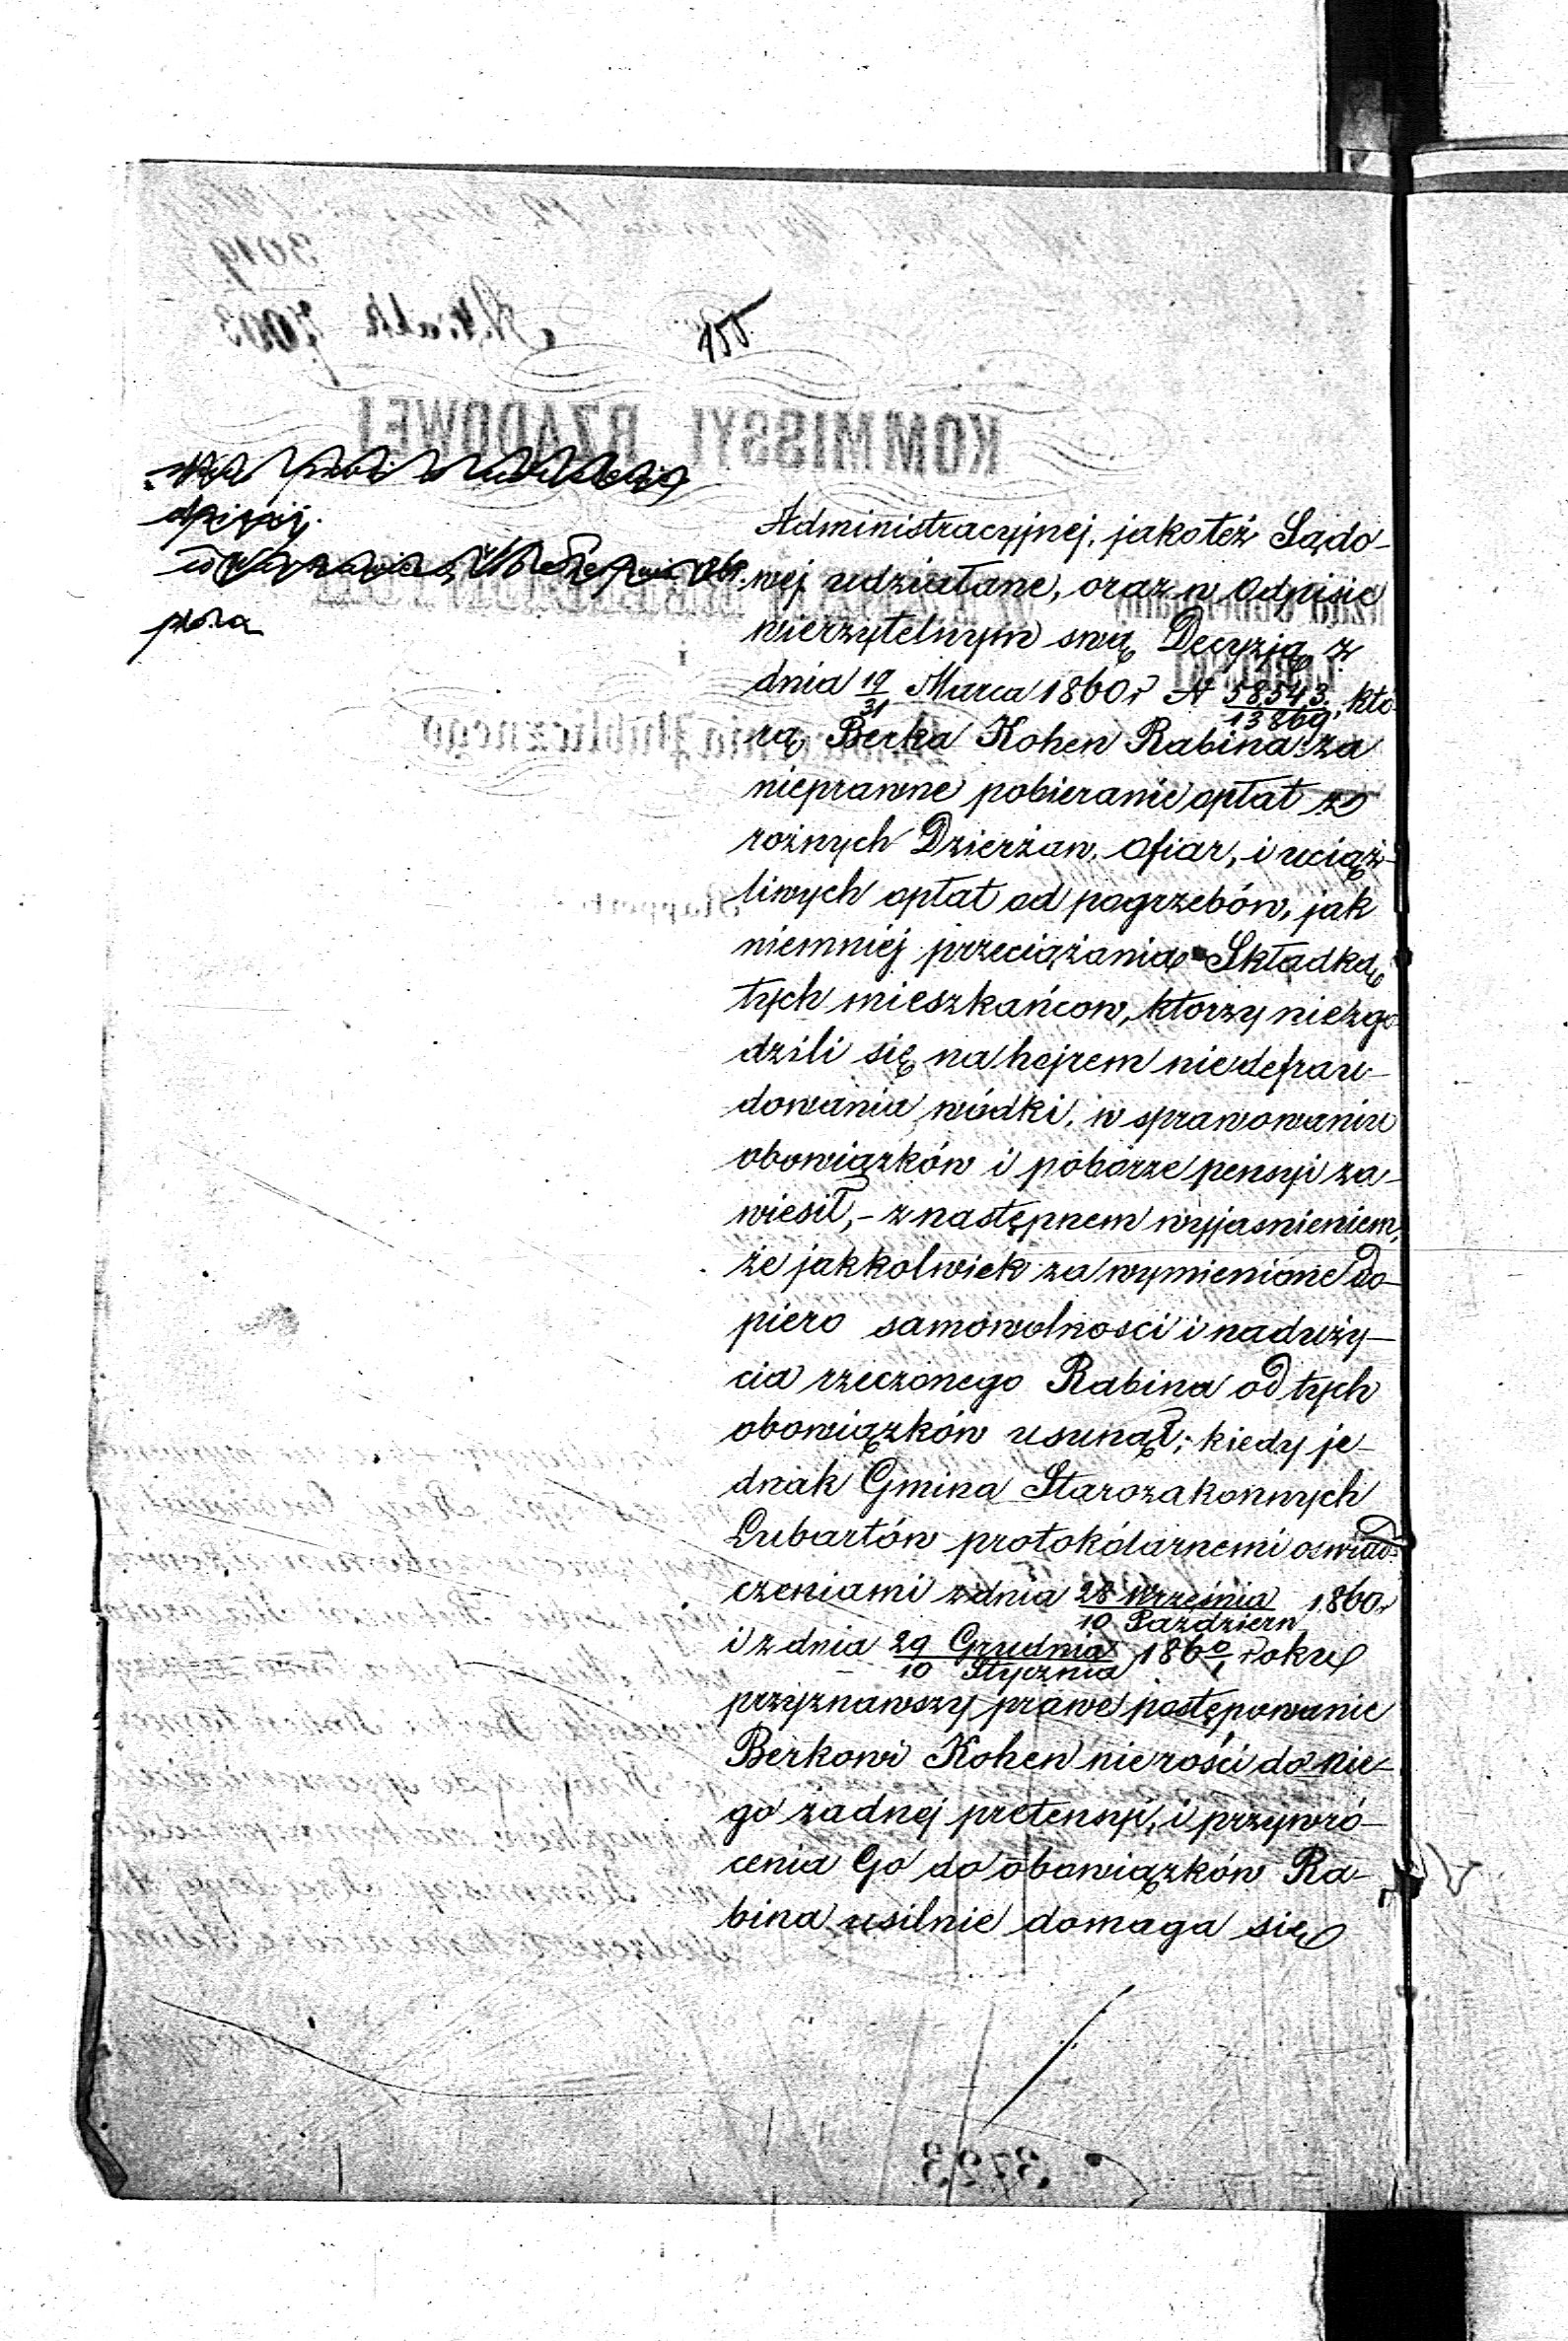 155.
Administracyjnej, jakoteż Sądo-
wej udziałane, oraz w Odpisie
wierzytelnym swą Decyzją z
dnia 19/31 Marca 1860 r N 58543/13869, któ
rą Berka Kohen Rabina za
nieprawne pobieranie opłat ze
rożnych Dzierżaw, Ofiar, i uciąż-
liwych opłat od pogrzebów, jak
niemniej przeciążania Składką
tych mieszkańcow, ktorzy niezgo
dzili się na hejrem niedefrau-
dowania wódki, w sprawowaniu
obowiązków i poborze pensyi za-
wiesił, - z następnem wyjasnieniem,
że jakkolwiek za wymienione do-
piero samowolności i naduży-
cia rzeczonego Rabina od tych
obowiązków usunął; kiedy je-
dnak Gmina Starozakonnych
Lubartów protokólarnemi oswiad-
czeniami z dnia 28 Września/10 Październ 1860 r
i z dnia 29 Grudnia/10 Stycznia 1860/1 roku
przyznawszy prawe postępowanie
Berkowi Kohen nierości do nie-
go żadnej pretensyi, i przywró-
cenia Go do obowiązków Ra-
bina usilnie domaga się